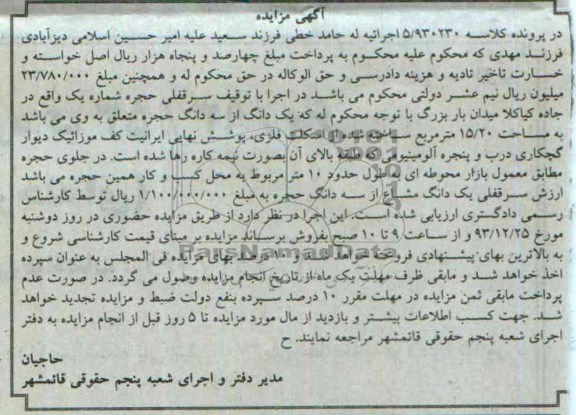 آگهی مزایده
در پرونده کلاسه ۵/۹۳۰۲۳۰ اجرائیه له حامد خطی فرزند سعید علیه امیر حسین اسلامی دیزآبادی
فرزند مهدی که محکوم علیه محکوم به پرداخت مبلغ چهارصد و پنجاه هزار ریال اصل خواسته و
خسارت تاخیر تادیه و هزینه دادرسی و حق الوکاله در حق محکوم له و همچنین مبلغ ۲۳/۷۸۰/۰۰۰
میلیون ریال نیم عشر دولتی محکوم می باشد در اجرا با توقیف سرقفلی حجره شماره یک واقع در
جاده کیاکلا میدان بار بزرگ با توجه محکوم له که یک دانگ از سه دانگ حجره متعلق به وی می باشد
به مساحت ۱۵/۲۰ مترمربع ساخته شده از اسکلت فلزی، پوشش نهایی ایرانیت کف موزائیک دیوار
گچکاری درب و پنجره آلومینیومی که طبقه بالای آن بصورت نیمه کاره رها شده است. در جلوی حجره
مطابق معمول بازار محوطه ای بطول حدود ۱۰ متر مربوط به محل کسب و کار همین حجره می باشد
ارزش سرقفلی یک دانگ مشاع از سه دانگ حجره به مبلغ ۱/۱۰۰/۰۰۰/۰۰۰ ریال توسط کارشناس
رسمی دادگستری ارزیابی شده است. این اجرا در نظر دارد از طریق مزایده حضوری در روز دوشنبه
مورخ ۹۳/۱۲/۲۵ و از ساعت ۹ تا ۱۰ صبح بفروش برساند مزایده بر مبنای قیمت کارشناسی شروع و
به بالاترین بهای پیشنهادی فروخته خواهد شد و ۱۰ درصد بهای مزایده فی المجلس به عنوان سپرده
اخذ خواهد شد و مابقی ظرف مهلت یک ماه از تاریخ انجام مزایده وصول می گردد. در صورت عدم
پرداخت مابقی ثمن مزایده در مهلت مقرر ۱۰ درصد سپرده بنفع دولت ضبط و مزایده تجدید خواهد
شد. جهت کسب اطلاعات بیشتر و بازدید از مال مورد مزایده تا ۵ روز قبل از انجام مزایده به دفتر
اجرای شعبه پنجم حقوقی قائمشهر مراجعه نمایند. ح
حاجیان
مدیر دفتر و اجرای شعبه پنجم حقوقی قائمشهر